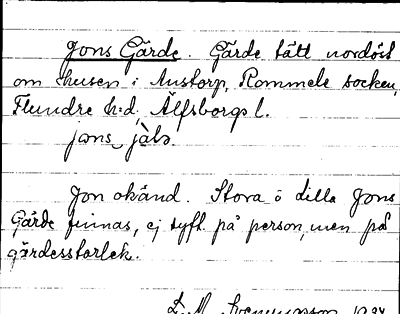 Jons Gärde. Gärde tätt nordöst
om husen i Anstorp, Rommele socken,
Flundre h:d. Älfsborgs l.
jons jàls.
Jon okänd. Stora o Lilla Jons
Gärde finnas, ej syft. på person, men på
gärdesstorlek.